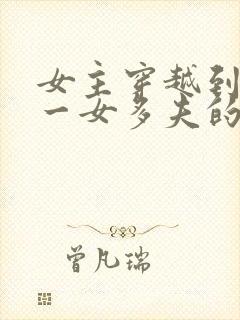 女主穿越到
一女多夫的
曾凡瑞